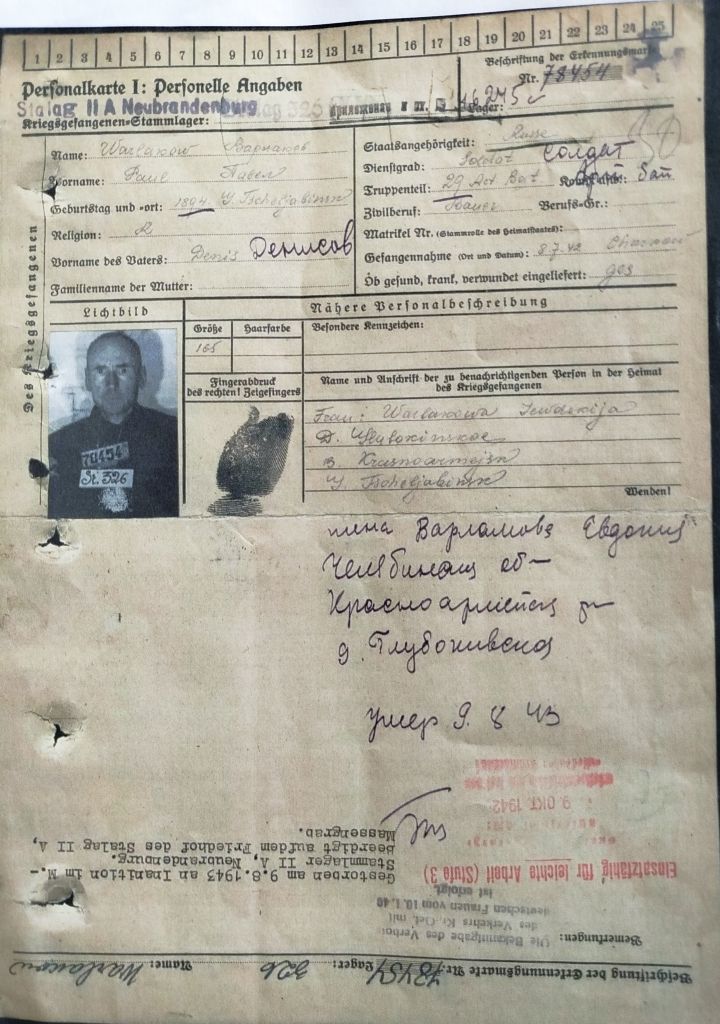 1 2 3 4 5 6 7 8 9 10 11 12 13 14 15 16 17 18 19 20 21 22 23 24 25
Personalkarte I: Personelle Angaben
Beschriftung der Erkennungsmarke
Nr. 78454
Stalag II A Neubrandenburg
Kriegsgefangenen-Stammlager:
Lager:
Des Kriegsgefangenen
Name: Warlakow
Vorname: Paul Павел
Geburtstag und -ort: 1894 Tscheljabinsk
Religion:
Vorname des Vaters: Denis Денисов
Familienname der Mutter:
Staatsangehörigkeit: Russe
Dienstgrad: Soldat Солдат
Truppenteil: 29 Art Bat
Zivilberuf: Bauer Berufs-Gr.:
Matrikel Nr. (Stammrolle des Heimatstaates):
Gefangennahme (Ort und Datum): 8.7.42 Charkow
Ob gesund, krank, verwundet eingeliefert: ges
Lichtbild
Nähere Personalbeschreibung
Größe Haarfarbe Besondere Kennzeichen:
165
Fingerabdruck
des rechten! Zeigefingers
Name und Anschrift der zu benachrichtigenden Person in der Heimat
des Kriegsgefangenen
Frau: Warlakowa Jewdokija
Krasnoarmejsk
Tscheljabinsk
Wenden!
78454
St. 326
жена Варламова Евдокия
Челябинская об-
Красноармейск р-
д. Глубокивское
умер 9. 8 43
9. OKT. 1942
Einsatzfähig für leichte Arbeit (Stufe 3)
Gestorben am 9.8.1943 an Inanition im M.-
Stammlager II A, Neubrandenburg.
Beerdigt auf dem Friedhof des Stalag II A,
Massengrab.
Bemerkungen:
Die Bekanntgabe des Verbots
des Verkehrs Kr. Gef. mit
deutschen Frauen vom 10.1.40
ist erfolgt.
Beschriftung der Erkennungsmarke Nr.: 78454 Lager: 326 Name: Warlakow